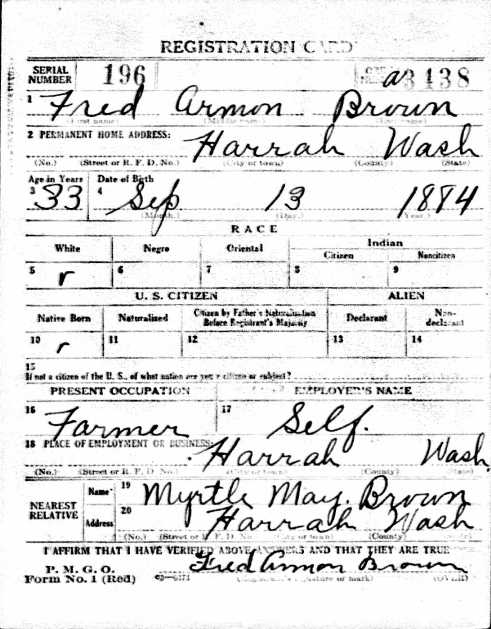 REGISTRATION CARD
SERIAL NUMBER 196 A3438
1 Fred Armon Brown
(First name) (Middle name) (Last name)
2 PERMANENT HOME ADDRESS: Harrah Wash
(No.) (Street or R. F. D. No.) (City or town) (County) (State)
Age in Years Date of Birth
3 33 4 Sep 13 1884
(Month.) (Day.) (Year.)
RACE
White Negro Oriental Indian
Citizen Noncitizen
5 ✓ 6 7 8 9
U. S. CITIZEN ALIEN
Native Born Naturalized Citizen by Father's Naturalization Before Registrant's Majority Declarant Non-declarant
10 ✓ 11 12 13 14
15
If not a citizen of the U. S., of what nation are you a citizen or subject?
PRESENT OCCUPATION EMPLOYER'S NAME
16 Farmer 17 Self.
18 PLACE OF EMPLOYMENT OR BUSINESS: Harrah Wash
(No.) (Street or R. F. D. No.) (City or town) (County) (State)
NEAREST RELATIVE Name 19 Myrtle May. Brown
Address 20 Harrah Wash
(No.) (Street or R. F. D. No.) (City or town) (County) (State)
I AFFIRM THAT I HAVE VERIFIED ABOVE ANSWERS AND THAT THEY ARE TRUE
P. M. G. O. Fred Armon Brown
Form No. 1 (Red) (Registrant's signature or mark) (OVER)